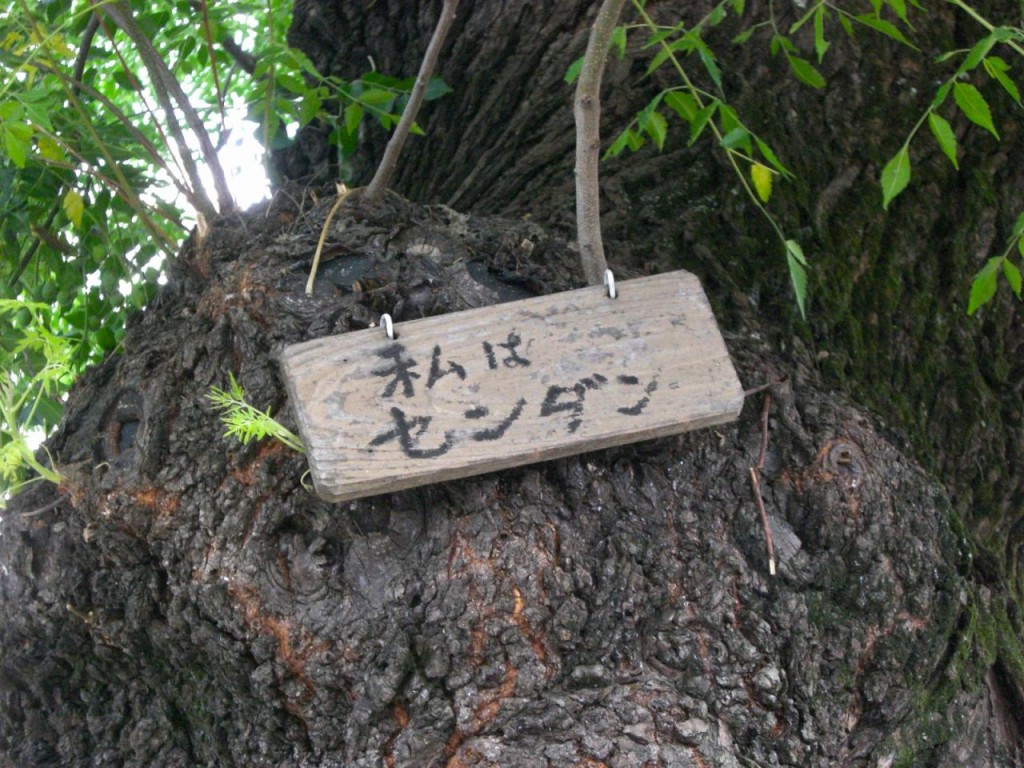 私は
センダン